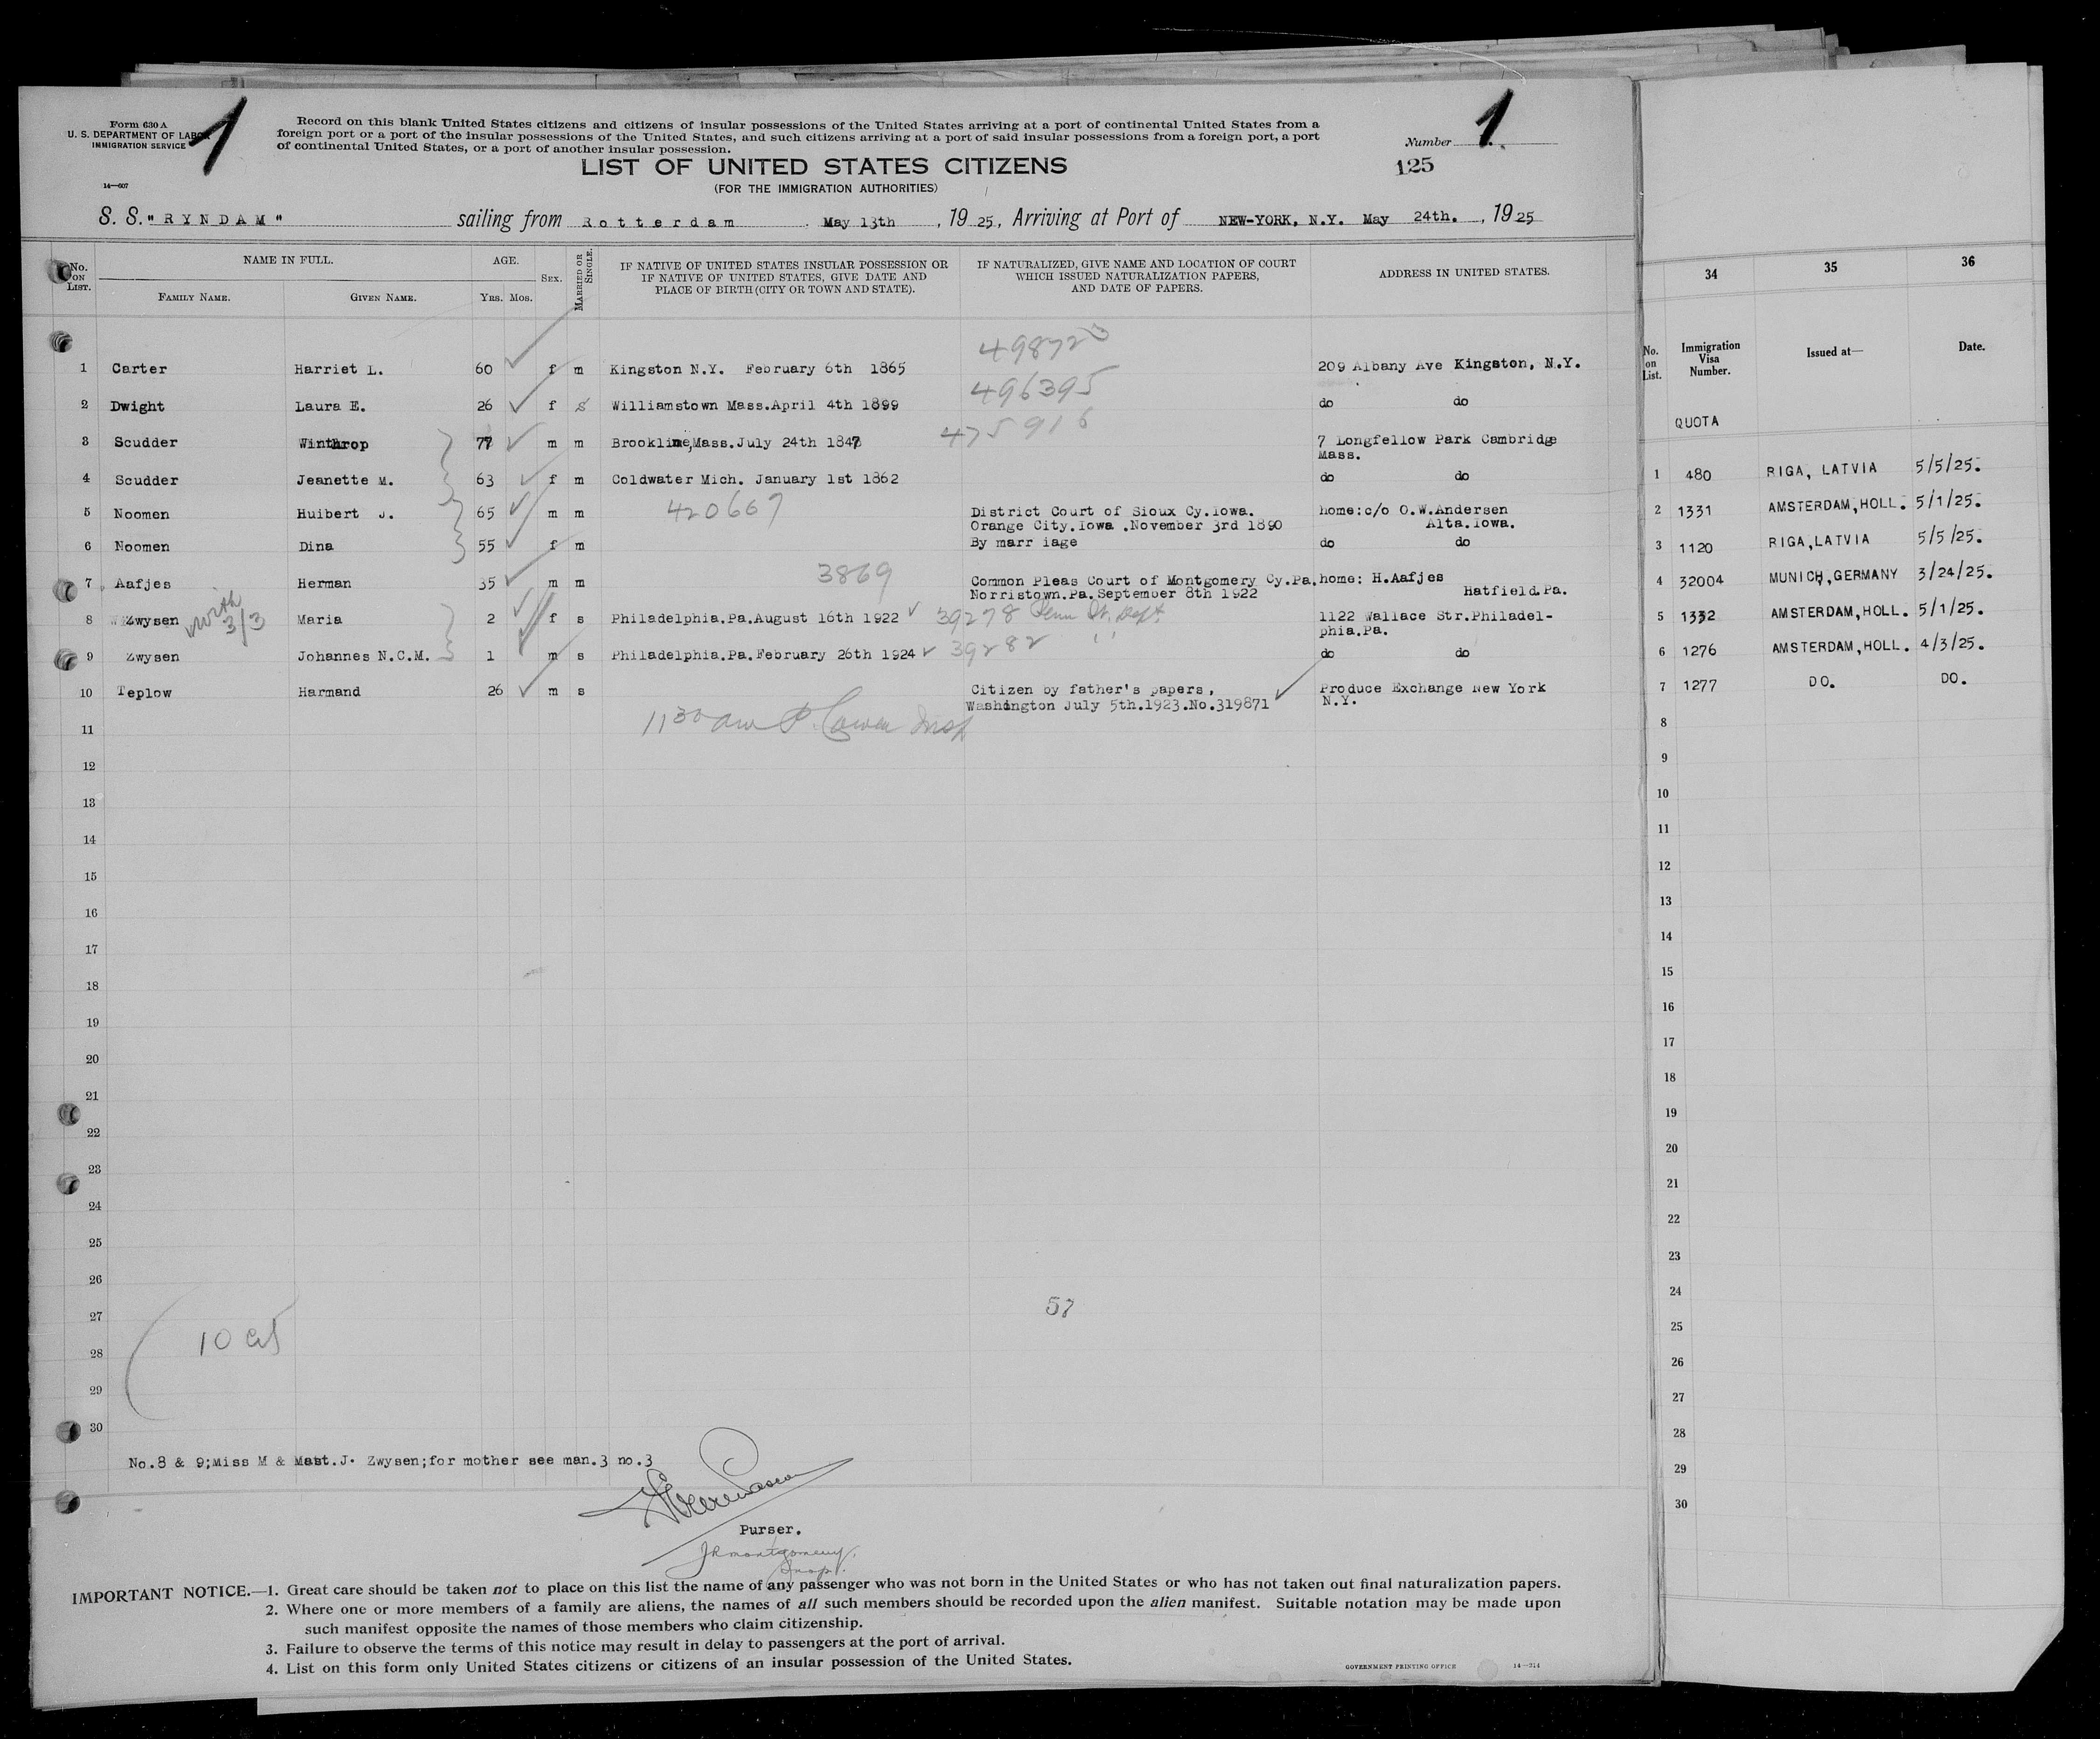 Form 630 A
U. S. DEPARTMENT OF LABOR
IMMIGRATION SERVICE
14—607
1
Record on this blank United States citizens and citizens of insular possessions of the United States arriving at a port of continental United States from a
foreign port or a port of the insular possessions of the United States, and such citizens arriving at a port of said insular possessions from a foreign port, a port
of continental United States, or a port of another insular possession.
Number 1
125
LIST OF UNITED STATES CITIZENS
(FOR THE IMMIGRATION AUTHORITIES)
S. S. "RYNDAM" sailing from Rotterdam May 13th, 1925, Arriving at Port of NEW-YORK, N.Y. May 24th., 1925
No. ON LIST. NAME IN FULL. FAMILY NAME. GIVEN NAME. AGE. YRS. MOS. SEX. MARRIED OR SINGLE.
IF NATIVE OF UNITED STATES INSULAR POSSESSION OR
IF NATIVE OF UNITED STATES, GIVE DATE AND
PLACE OF BIRTH (CITY OR TOWN AND STATE).
IF NATURALIZED, GIVE NAME AND LOCATION OF COURT
WHICH ISSUED NATURALIZATION PAPERS,
AND DATE OF PAPERS.
ADDRESS IN UNITED STATES.
498723
1 Carter Harriet L. 60 f m Kingston N.Y. February 6th 1865 209 Albany Ave Kingston, N.Y.
496395
2 Dwight Laura E. 26 f s Williamstown Mass.April 4th 1899 do do
475916
3 Scudder Winthrop 77 m m Brookline,Mass.July 24th 1847 7 Longfellow Park Cambridge
Mass.
4 Scudder Jeanette M. 63 f m Coldwater Mich. January 1st 1862 do do
5 Noomen Huibert J. 65 m m 420667 District Court of Sioux Cy.Iowa. home:c/o O.W.Andersen
Orange City.Iowa .November 3rd 1890 Alta.Iowa.
6 Noomen Dina 55 f m By marr iage do do
7 Aafjes Herman 35 m m 3869 Common Pleas Court of Montgomery Cy.Pa. home: H.Aafjes
Norristown.Pa.September 8th 1922 Hatfield.Pa.
8 Zwysen with 3/3 Maria 2 f s Philadelphia.Pa.August 16th 1922 39278 Penn St. Dept 1122 Wallace Str.Philadel-
phia.Pa.
9 Zwysen Johannes N.C.M. 1 m s Philadelphia.Pa.February 26th 1924 39282 " do do
10 Teplow Harmand 26 m s Citizen by father's papers, Produce Exchange New York
Washington July 5th.1923.No.319871 N.Y.
1130 am P. Cowen Insp
11
12
13
14
15
16
17
18
19
20
21
22
23
24
25
26
27
28
29
30
57
10
No.8 & 9;Miss M & Mast.J. Zwysen;for mother see man.3 no.3
Purser.
JR Montgomery.
Insp.
IMPORTANT NOTICE.—1. Great care should be taken not to place on this list the name of any passenger who was not born in the United States or who has not taken out final naturalization papers.
2. Where one or more members of a family are aliens, the names of all such members should be recorded upon the alien manifest. Suitable notation may be made upon
such manifest opposite the names of those members who claim citizenship.
3. Failure to observe the terms of this notice may result in delay to passengers at the port of arrival.
4. List on this form only United States citizens or citizens of an insular possession of the United States.
GOVERNMENT PRINTING OFFICE 14—214
34 35 36
No. on List. Immigration Visa Number. Issued at— Date.
QUOTA
1 480 RIGA, LATVIA 5/5/25.
2 1331 AMSTERDAM,HOLL. 5/1/25.
3 1120 RIGA,LATVIA 5/5/25.
4 32004 MUNICH,GERMANY 3/24/25.
5 1332 AMSTERDAM,HOLL. 5/1/25.
6 1276 AMSTERDAM,HOLL. 4/3/25.
7 1277 DO. DO.
8
9
10
11
12
13
14
15
16
17
18
19
20
21
22
23
24
25
26
27
28
29
30